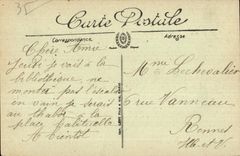 35
Carte Postale
Correspondance
Adresse
Chère Amie
Jeudi je vais à la
bibliothèque, ne
montez pas l'escalier
en vain je serais
au Thabor à la
place habituelle
A bientôt
Mme Lechevalier
6 rue Vanneau
Rennes
Ille et V.